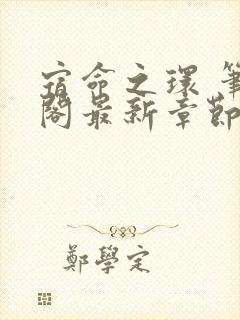 宿命之環 筆
閣最新章節
鄭學定